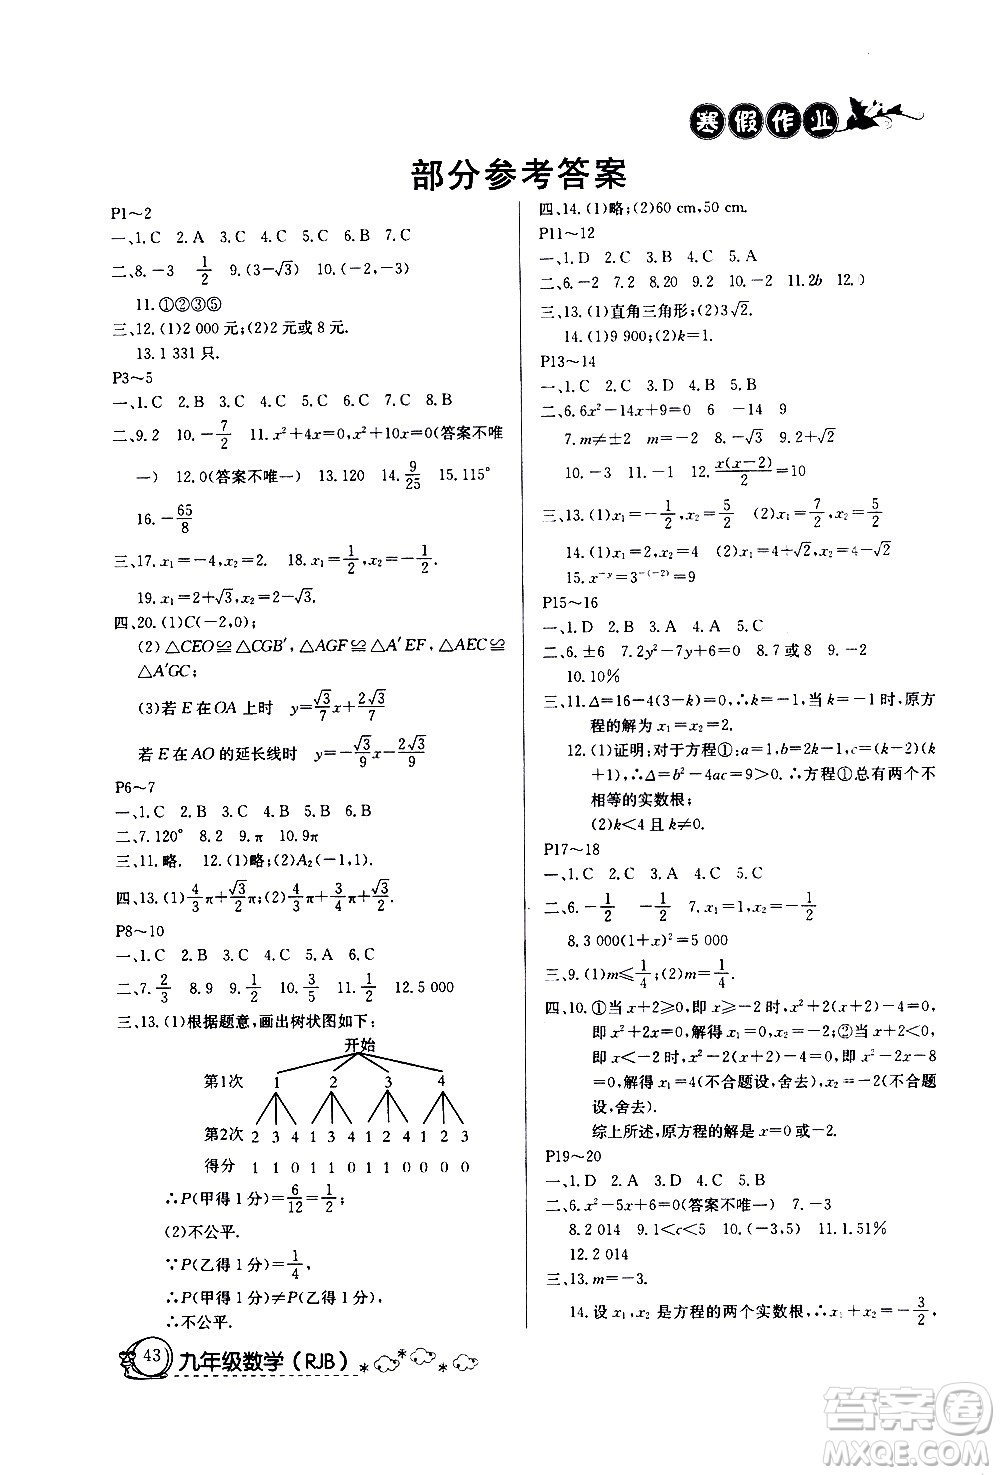 寒假作业
部分参考答案
P1～2
一、1.C 2.A 3.C 4.C 5.B 6.B 7.C
二、8.－3 1/2 9.(3－√3) 10.(－2,－3)
11.①②③⑤
三、12.(1)2 000元;(2)2元或8元.
13.1 331只.
P3～5
一、1.C 2.B 3.A 4.C 5.B 6.C 7.C 8.B
二、9.2 10.－7/2 11.x²＋4x＝0,x²＋10x＝0(答案不唯
一) 12.0(答案不唯一) 13.120 14.9/25 15.115°
16.－65/8
三、17.x₁＝－4,x₂＝2. 18.x₁＝1/2,x₂＝－1/2.
19.x₁＝2＋√3,x₂＝2－√3.
四、20.(1)C(－2,0);
(2)△CEO≌△CGB′,△AGF≌△A′EF,△AEC≌
△A′GC;
(3)若E在OA上时 y＝√3/7x＋2√3/7
若E在AO的延长线时 y＝－√3/9x－2√3/9
P6～7
一、1.C 2.B 3.C 4.B 5.C 6.A
二、7.120° 8.2 9.π 10.9π
三、11.略. 12.(1)略;(2)A₂(－1,1).
四、13.(1)4/3π＋√3/2π;(2)4/3π＋√3/2π＋2/3π.
P8～10
一、1.C 2.B 3.C 4.C 5.A 6.C
二、7.2/3 8.9 9.1/2 10.3/5 11.1/2 12.5 000
三、13.(1)根据题意,画出树状图如下:
开始
第1次 1 2 3 4
第2次 2 3 4 1 3 4 1 2 4 1 2 3
得分 1 1 0 1 1 0 1 0 1 1 0 0
∴P(甲得1分)＝6/12＝1/2;
(2)不公平.
∵P(乙得1分)＝1/4,
∴P(甲得1分)≠P(乙得1分),
∴不公平.
43 九年级数学(RJB)
四、14.(1)略;(2)60 cm,50 cm.
P11～12
一、1.D 2.C 3.B 4.C 5.A
二、6.－2 7.2 8.20 9.2 10.－2 11.2b 12.)
三、13.(1)直角三角形;(2)3√2.
14.(1)9 900;(2)k＝1.
P13～14
一、1.C 2.C 3.D 4.B 5.C
二、6.6x²－14x＋9＝0 6 －14 9
7.m≠±2 m＝－2 8.－2 9.2＋√2
10.－3 11.－1 12.x(x－2)/2＝10
三、13.(1)x₁＝－1/2,x₂＝5/2 (2)x₁＝7/2,x₂＝5/2
14.(1)x₁＝2,x₂＝4 (2)x₁＝4＋√2,x₂＝4－√2
15.x⁻ʸ＝3⁻⁽⁻²⁾＝9
P15～16
一、1.D 2.B 3.A 4.B 5.B
二、6.±6 7.2y²－7y＋5＝0 8.7或8 9.－2
10.10%
三、11.Δ＝16－4(3－k)＝0,∴k＝－1,当k＝－1时,原方
程的解为x₁＝x₂＝2.
12.(1)证明:对于方程①:a＝1,b＝2k－1,c＝(k－2)(k
＋1),∴Δ＝b²－4ac＝9＞0.∴方程①总有两个不
相等的实数根;
(2)k＜4且k≠0.
P17～18
一、1.C 2.C 3.A 4.C 5.C
二、6.－1/2 －1/2 7.x₁＝1,x₂＝－1/2
8.3 000(1＋x)²＝5 000
三、9.(1)m≤1/4;(2)m＝1/4.
四、10.①当x＋2≥0,即x≥－2时,x²＋2(x＋2)－4＝0,
即x²＋2x＝0,解得x₁＝0,x₂＝－2;②当x＋2＜0,
即x＜－2时,x²－2(x＋2)－4＝0,即x²－2x－8
＝0,解得x₁＝4(不合题设,舍去),x₂＝－2(不合题
设,舍去).
综上所述,原方程的解是x＝0或－2.
P19～20
一、1.C 2.A 3.D 4.C 5.B
二、6.x²－5x＋6＝0(答案不唯一) 7.－3
8.2 014 9.1＜c＜5 10.(－3,5) 11.1.51%
12.2 014
三、13.m＝－3.
14.设x₁,x₂是方程的两个实数根,∴x₁＋x₂＝－3/2,
答案卷
MXQE.COM